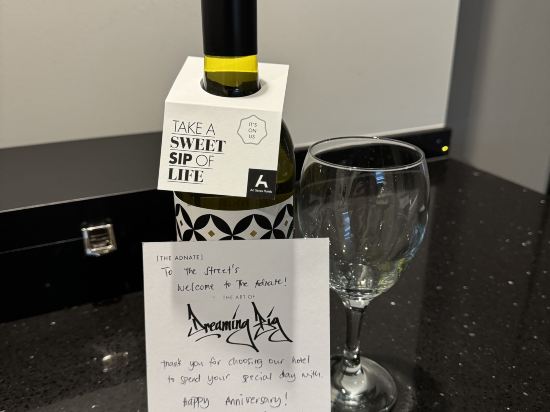 IT'S
ON
US
TAKE A
SWEET
SIP OF
LIFE
Art Series Hotels
[THE ADNATE]
To The Street's
Welcome to The Adnate!
THE ART OF
Dreaming Big
Thank you for choosing our hotel
to spend your special day with.
Happy Anniversary!